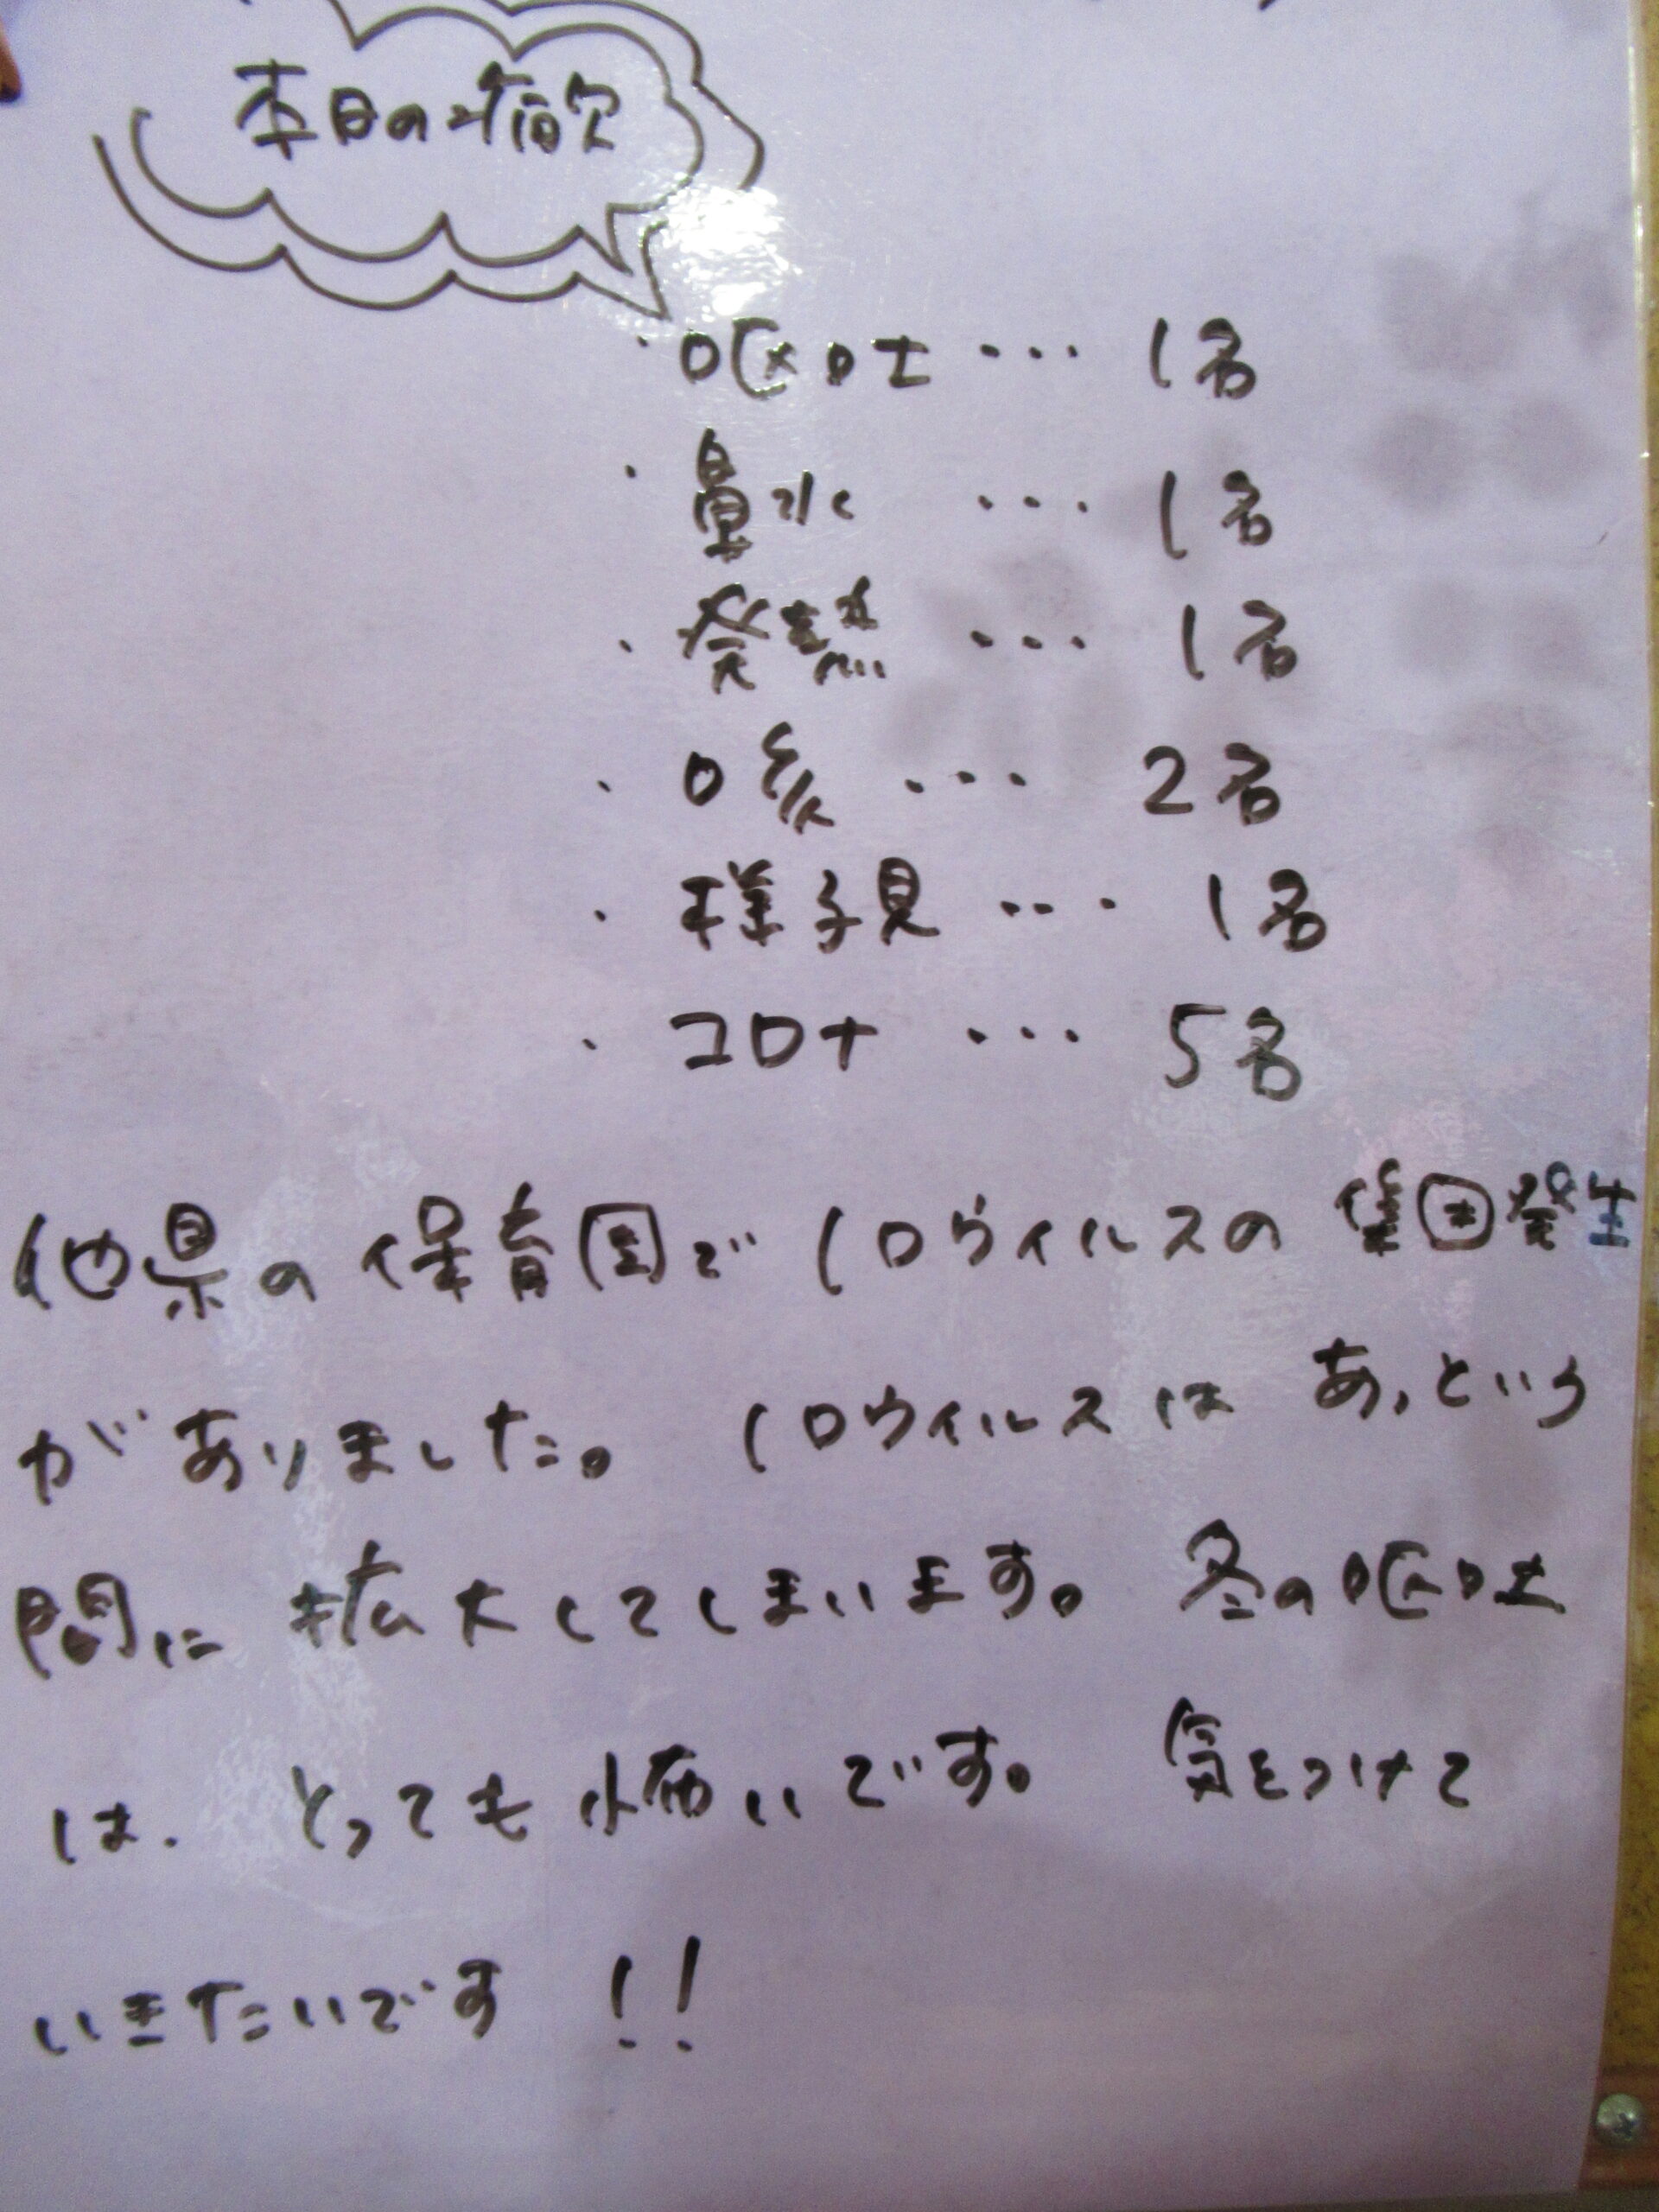 本日の病欠
・嘔吐 … 1名
・鼻水 … 1名
・発熱 … 1名
・咳 … 2名
・様子見 … 1名
・コロナ … 5名
他県の保育園で ノロウィルスの 集団発生
がありました。 ノロウィルスは あっという
間に 拡大してしまいます。 冬の嘔吐
は、とっても怖いです。 気をつけて
いきたいです !!